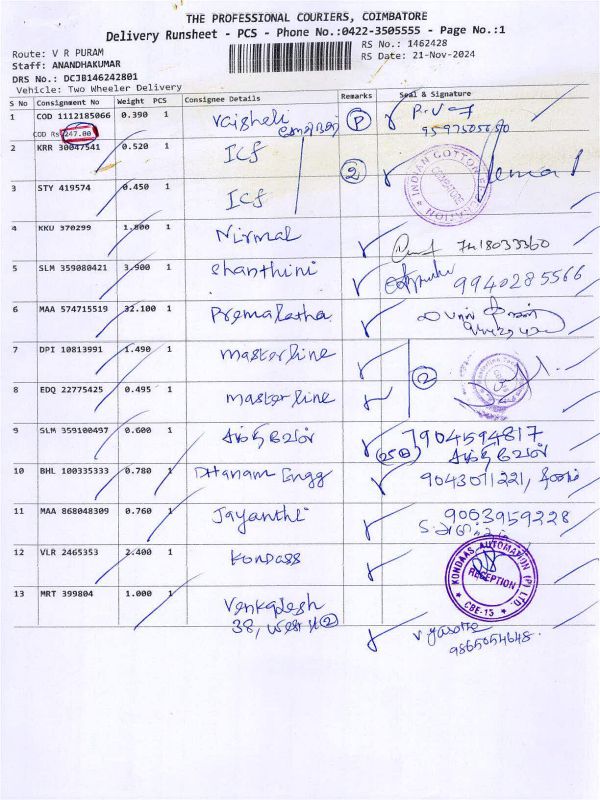 THE PROFESSIONAL COURIERS, COIMBATORE
Delivery Runsheet - PCS - Phone No.:0422-3505555 - Page No.:1
Route: V R PURAM
RS No.: 1462428
Staff: ANANDHAKUMAR
RS Date: 21-Nov-2024
DRS No.: DCJB146242801
Vehicle: Two Wheeler Delivery
S No Consignment No Weight PCS Consignee Details Remarks Seal & Signature
1 COD 1112185066 0.390 1 Vaisheli P
COD Rs 247.00 9597505650
2 KRR 30047541 0.520 1 ICF 2 INDIAN COTTON FEDERATION COIMBATORE
3 STY 419574 0.450 1 ICF
4 KKU 370299 1.800 1 Nirmal 7418033360
5 SLM 359080421 3.900 1 Shanthini 9940285566
6 MAA 574715519 32.100 1 Premalatha
7 DPI 10813991 1.490 1 masterline
2
8 EDQ 22775425 0.495 1 masterline
9 SLM 359100497 0.600 1 7904594817
250
10 BHL 100335333 0.780 1 Dhanam Engg 9043071221,
11 MAA 868048309 0.760 1 Jayanthi 9003959228
12 VLR 2465353 2.400 1 Kondass KONDAAS AUTOMATION (P) LTD. RECEPTION CBE-13
13 MRT 399804 1.000 1 Venkatesh
38, West 2
9865054648.